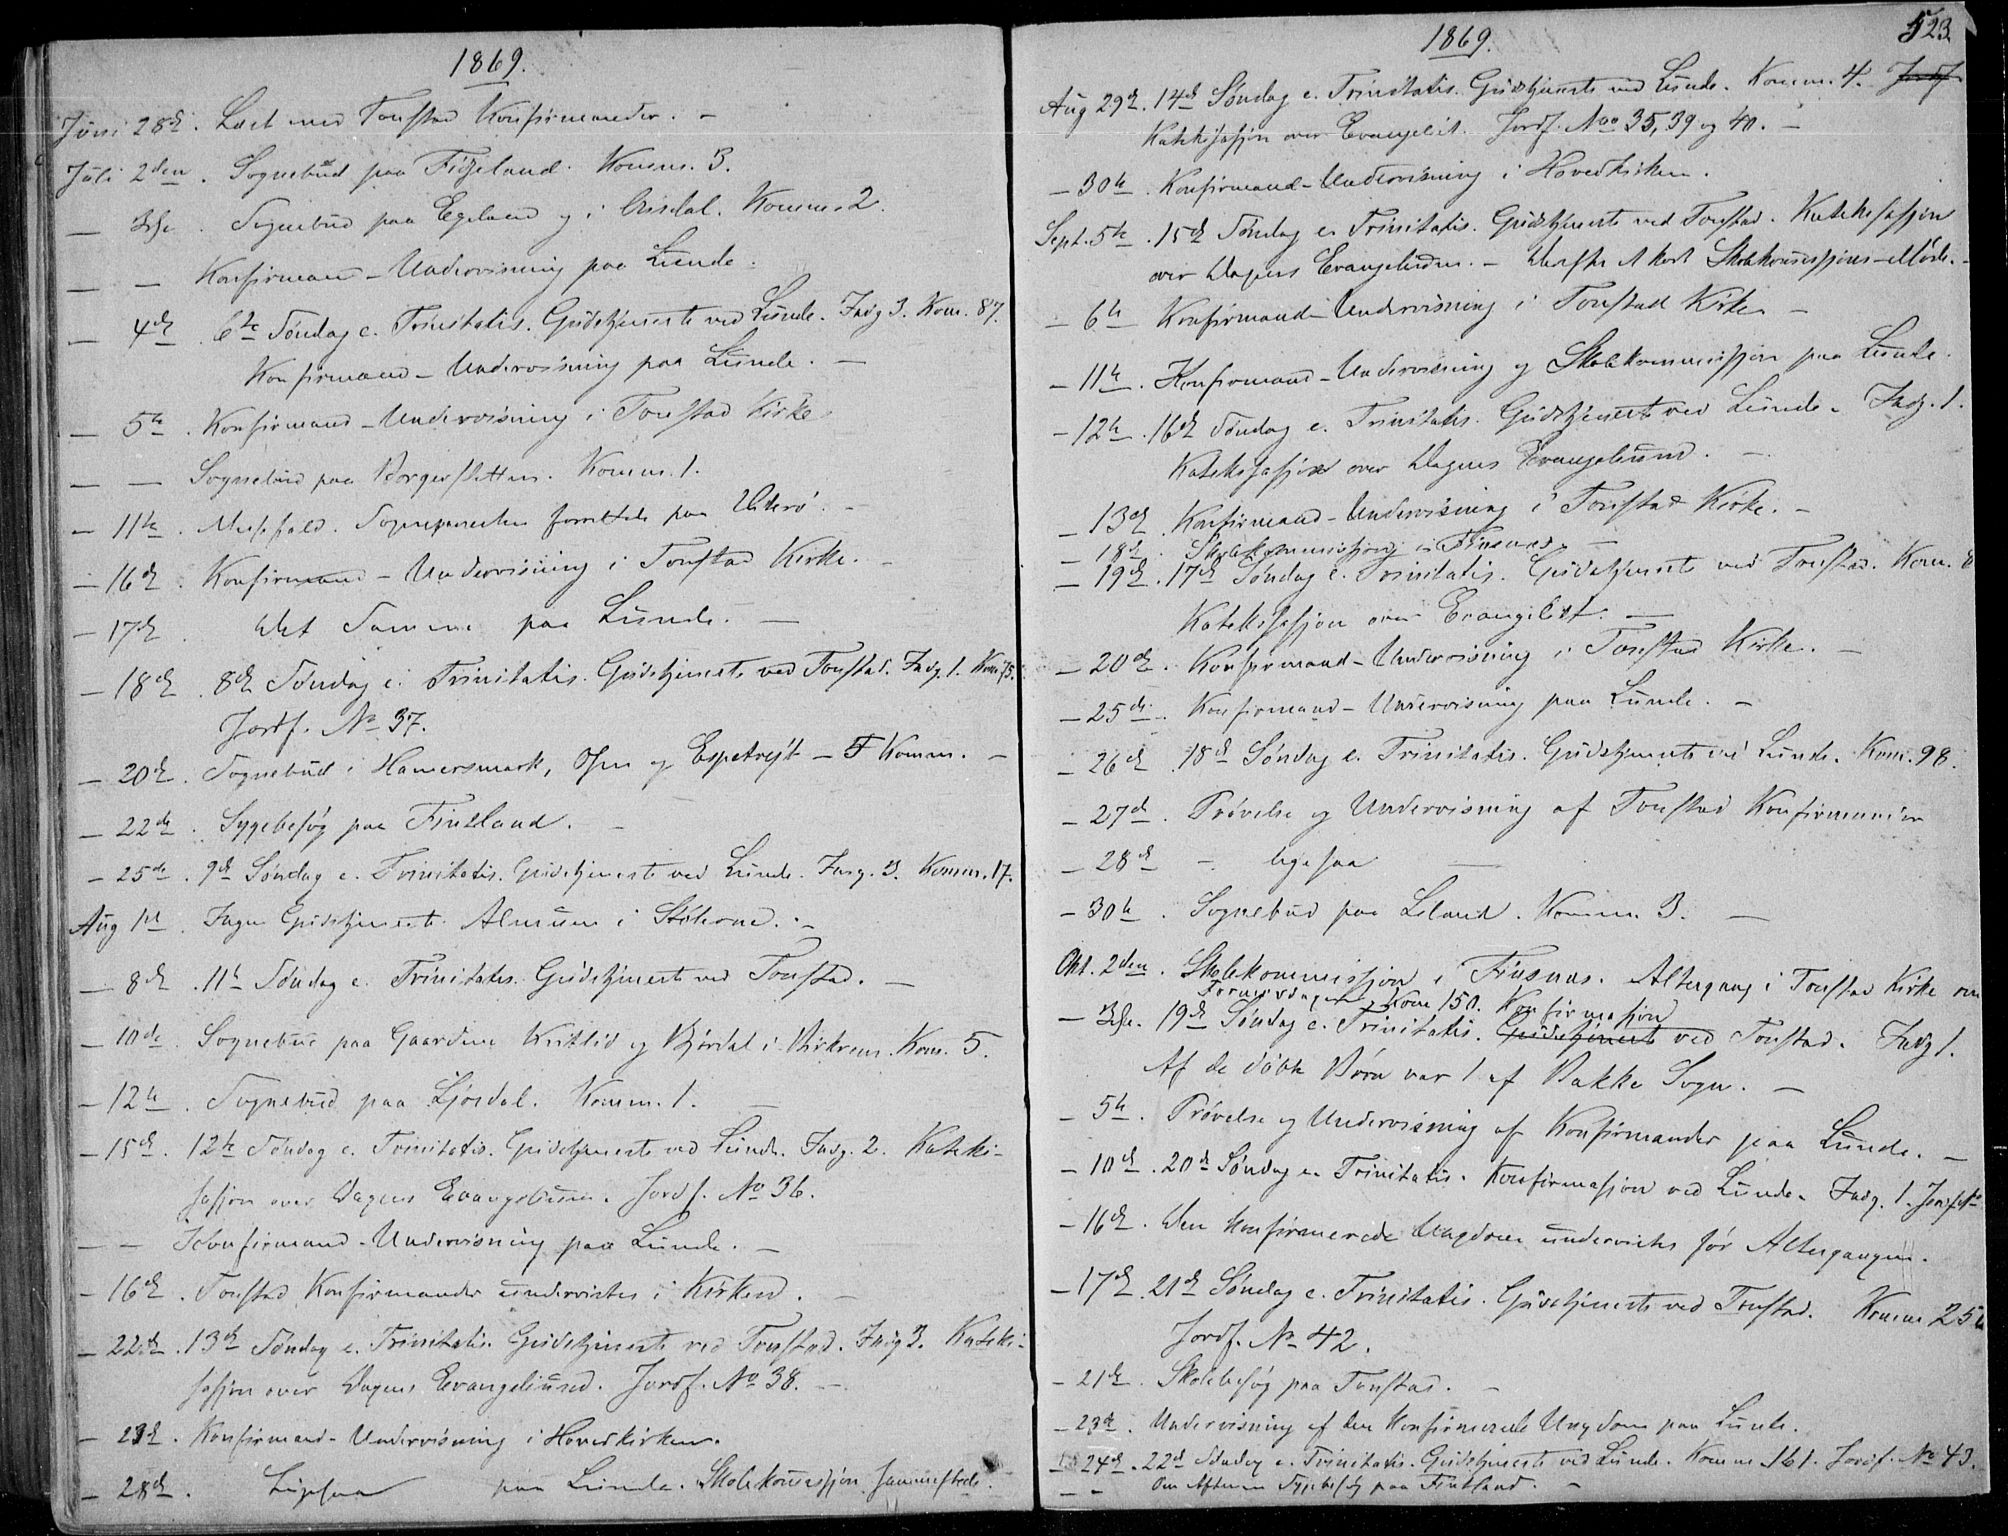 1869.
Juni 28de. Læst med Tonstad Konfirmander. –
Juli 2den. Sognebud paa Fidjeland. Komm. 3.
— 3die. Sognebud paa Egeland og i Aisdal. Komm. 2
— — Konfirmand-Undervisning paa Lunde.
— 4de. 6te Søndag e. Trinitatis. Gudstjeneste ved Lunde. Indg 3. Kom. 87.
Konfirmand-Undervisning paa Lunde. —
— 5te. Konfirmand-Undervisning i Tonstad Kirke
— — Sognebud paa Komm. 1.
— 11te. Messfald. Sognepresten forrettede paa Hiterø. –
— 16de. Konfirmand-Undervisning i Tonstad Kirke. –
— 17de. Det Samme paa Lunde. —
— 18de. 8de Søndag e. Trinitatis. Gudstjeneste ved Tonstad. Indg. 1. Kom 75.
Jordf. No 37.
— 20de. Sognebud i Hamersmark, og Espetvejt – Komm. –
— 22de. Sygebesøg paa Fintland. –
— 25de. 9de Søndag e. Trinitatis. Gudstjeneste ved Lunde. Indg. 3. Komm. 17.
Aug 1ste. Ingen Gudstjeneste. Almuen i Støhlerne. –
— 8de. 11te Søndag e. Trinitatis. Gudstjeneste ved Tonstad. —
— 10de. Sognebud paa Gaardene og i Birkrem. Kom. 5.
— 12te. Sognebud paa Ljosdal. Komm. 1. —
— 15de. 12te Søndag e. Trinitatis. Gudstjeneste ved Lunde. Indg. 2. Kateki-
sasjon over Dagens Evangelium. Jordf. No 36.
— — Konfirmand-Undervisning paa Lunde. —
— 16de. Tonstad Konfirmander undervistes i Kirken. –
— 22de. 13de Søndag e. Trinitatis. Gudstjeneste ved Tonstad. Indg 3. Kateki-
sasjon over Dagens Evangelium. Jordf. No 38. –
— 23de. Konfirmand-Undervisning i Hovedkirken.
— 28de. Ligesaa paa Lunde. Skolekommisjon sammesteds.
1869.
523.
Aug 29de. 14de Søndag e. Trinitatis. Gudstjeneste ved Lunde. Komm. 4. Jordf
Katekisasjon over Evangeliet. Jordf. Noo 35, 39 og 40. –
— 30te. Konfirmand-Undervisning i Hovedkirken.
Sept. 5te. 15de Søndag e. Trinitatis. Gudstjeneste ved Tonstad. Katekisasjon
over Dagens Evangelium. – Derefter et kort Skolekommisjons-Møde. –
— 6te Konfirmand-Undervisning i Tonstad Kirke –
— 11te. Konfirmand-Undervisning og Skolekommissjon paa Lunde.
— 12te. 16de Søndag e. Trinitatis. Gudstjeneste ved Lunde. Indg. 1.
Katekisasjon over Dagens Evangelium. –
— 13de. Konfirmand-Undervisning i Tonstad Kirke. –
— 18de. Skolekommissjon i Finsnes –
— 19de. 17de Søndag e. Trinitatis. Gudstjeneste ved Tonstad. Kom.
Katekisasjon over Evangeliet. —
— 20de. Konfirmand-Undervisning i Tonstad Kirke. –
— 25de. Konfirmand-Undervisning paa Lunde. –
— 26de. 18de Søndag e. Trinitatis. Gudstjeneste ved Lunde. Kom. 98.
— 27de. Prøvelse og Undervisning af Tonstad Konfirmander
— 28de – ligesaa —
— 30te. Sognebud paa Leland. Komm. 3. —
Okt. 2den. Skolekommissjon i Finsnes. Altergang i Tonstad Kirke om
Formiddagen, Kom 150. Konfirmasjon
— 3die. 19de Søndag e. Trinitatis. Gudstjeneste ved Tonstad. Indg 1.
Af de døbte Børn var 1 af Bakke Sogn. –
— 5te. Prøvelse og Undervisning af Konfirmander paa Lunde. –
— 10de. 20de Søndag e. Trinitatis. Konfirmasjon ved Lunde. Indg. 1.
— 16de. Den konfirmerede Ungdom undervistes før Altergangen.
— 17de. 21de Søndag e. Trinitatis. Gudstjeneste ved Tonstad. Komm 25
Jordf. No 42.
— 21de. Skolebesøg paa Tonstad. –
— 23de. Undervisning af den konfirmerede Ungdom paa Lunde.
— 24de. 22de Søndag e. Trinitatis. Gudstjeneste ved Lunde. Komm 161. Jordf. No 43.
— – Om Aftenen Sygebesøg paa Fintland. –